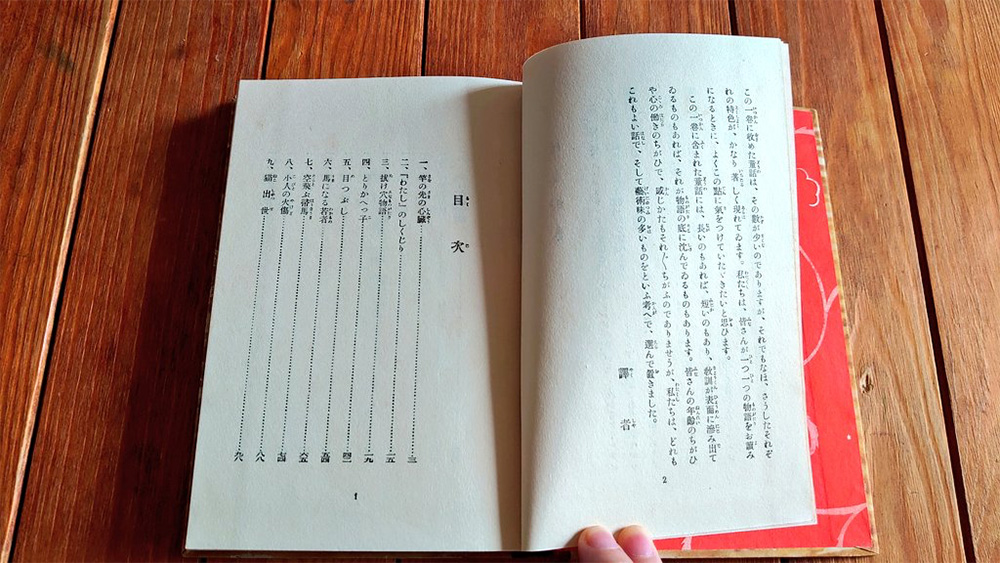 この一卷に收めた童話は、その數が少いのでありますが、それでもなほ、さうしたそれぞ
れの特色が、かなり著しく現れてゐます。私たちは、皆さんが一つ一つの物語をお讀み
になるときに、よくこの點に氣をつけていたゞきたいと思ひます。
この一卷に含まれた童話には、長いのもあれば、短いのもあり、敎訓が表面に滲み出て
ゐるものもあれば、それが物語の底に沈んでゐるものもあります。皆さんの年齡のちがひ
や心の働きのちがひで、感じかたもそれ〴〵ちがふのでありませうが、私たちは、どれも
これもよい話で、そして藝術味の多いものをといふ考へで、選んで置きました。
譯者
2
目次
一、竿の先の心臟…三
二、「わたし」のしくじり…一五
三、拔け穴物語…一九
四、とりかへつ子
五、目つぶし…四一
六、馬になる若者…五四
七、空飛ぶ箒馬…六五
八、小人の火傷…七四
九、猫出世…八八
1